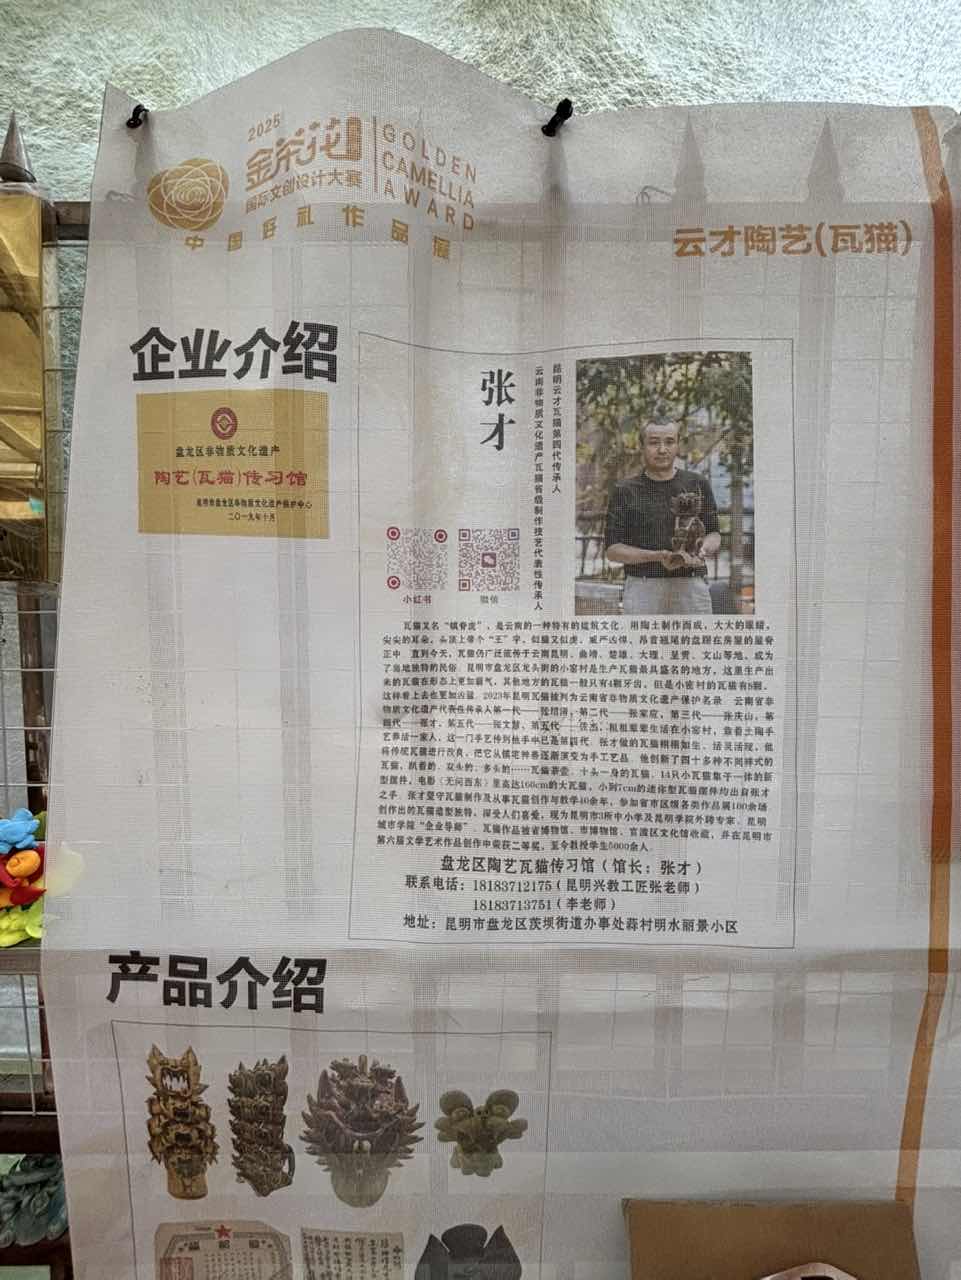 2025
金茶花
国际文创设计大赛
GOLDEN
CAMELLIA
AWARD
中国好礼作品展
云才陶艺(瓦猫)
企业介绍
盘龙区非物质文化遗产
陶艺(瓦猫)传习馆
昆明市盘龙区非物质文化遗产保护中心
二〇一九年十月
张才
昆明云才瓦猫第四代传承人
云南非物质文化遗产瓦猫省级制作技艺代表性传承人
小红书
微信
瓦猫又名“镇脊虎”，是云南的一种特有的建筑文化。用陶土制作而成，大大的眼睛，
尖尖的耳朵，头顶上带个“王”字，似猫又似虎，威严凶悍，昂首翘尾的盘踞在房屋的屋脊
正中。直到今天，瓦猫仍广泛流传于云南昆明、曲靖、楚雄、大理、呈贡、文山等地，成为
了当地独特的民俗。昆明市盘龙区龙头街的小窑村是生产瓦猫最具盛名的地方，这里生产出
来的瓦猫在形态上更加霸气，其他地方的瓦猫一般只有4颗牙齿，但是小窑村的瓦猫有8颗，
这样看上去也更加凶猛。2023年昆明瓦猫被列为云南省非物质文化遗产保护名录。云南省非
物质文化遗产代表性传承人第一代——张绍泽，第二代——张家应，第三代——张庆山，第
四代——张才，第五代——张文慧，第五代——，祖祖辈辈生活在小窑村，靠着土陶手
艺养活一家人，这一门手艺传到他手中已是第四代。张才做的瓦猫栩栩如生、活灵活现，他
将传统瓦猫进行改良，把它从镇宅神兽逐渐演变为手工艺品。他创新了四十多种不同样式的
瓦猫，趴着的、双头的、多头的……瓦猫茶壶、十头一身的瓦猫、14只小瓦猫集于一体的新
型摆件，电影《无问西东》里高达160cm的大瓦猫，小到7cm的迷你型瓦猫摆件均出自张才
之手。张才坚守瓦猫制作及从事瓦猫创作与教学40余年，参加省市区级各类作品展100余场，
创作出的瓦猫造型独特，深受人们喜爱，现为昆明市3所中小学及昆明学院外聘专家、昆明
城市学院“企业导师”。瓦猫作品被省博物馆、市博物馆、官渡区文化馆收藏，并在昆明市
第六届文学艺术作品创作中荣获二等奖，至今教授学生5000余人。
盘龙区陶艺瓦猫传习馆（馆长：张才）
联系电话：18183712175（昆明兴教工匠张老师）
18183713751（李老师）
地址：昆明市盘龙区茨坝街道办事处蒜村明水丽景小区
产品介绍